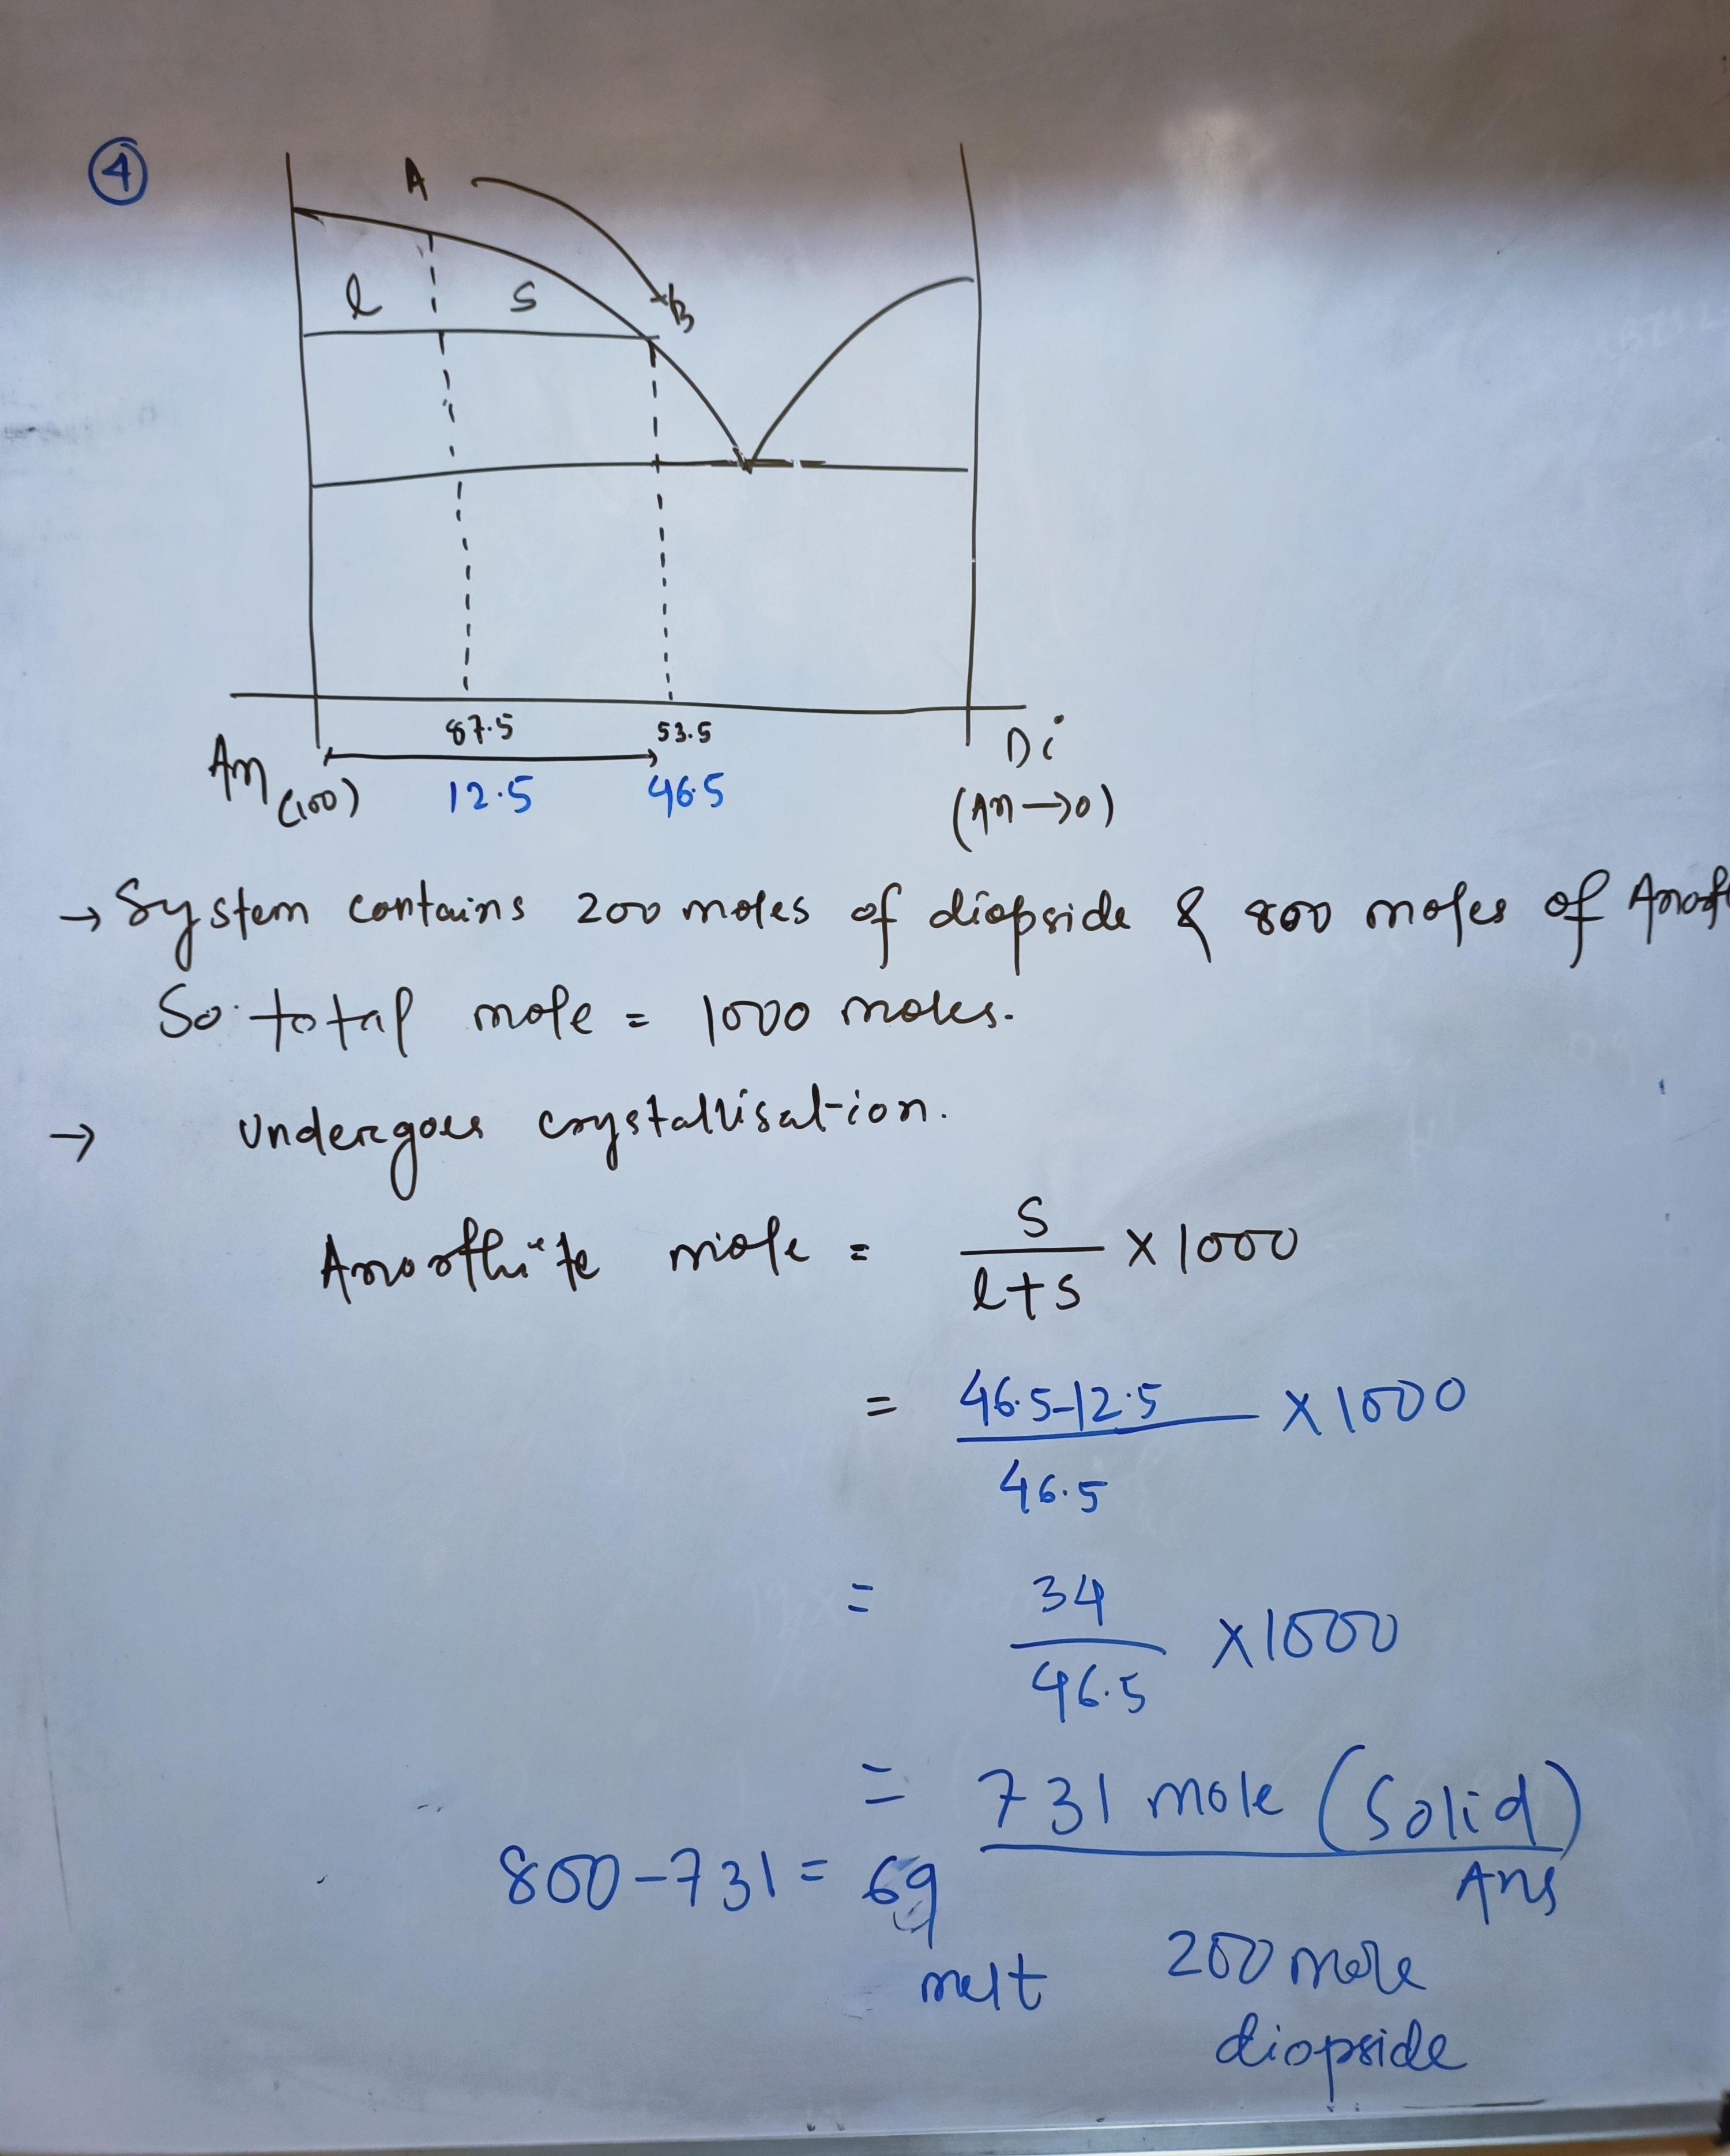 4
A
B
l s
87.5 53.5
An (100) 12.5 46.5 Di
(An → 0)
→ System contains 200 moles of diopside & 800 moles of
So total mole = 1000 moles.
→ Undergoes crystallisation.
Anorthite mole = s / l+s × 1000
= 46.5-12.5 / 46.5 × 1000
= 34 / 46.5 × 1000
= 731 mole (Solid)
Ans
800-731 = 69
melt
200 mole
diopside